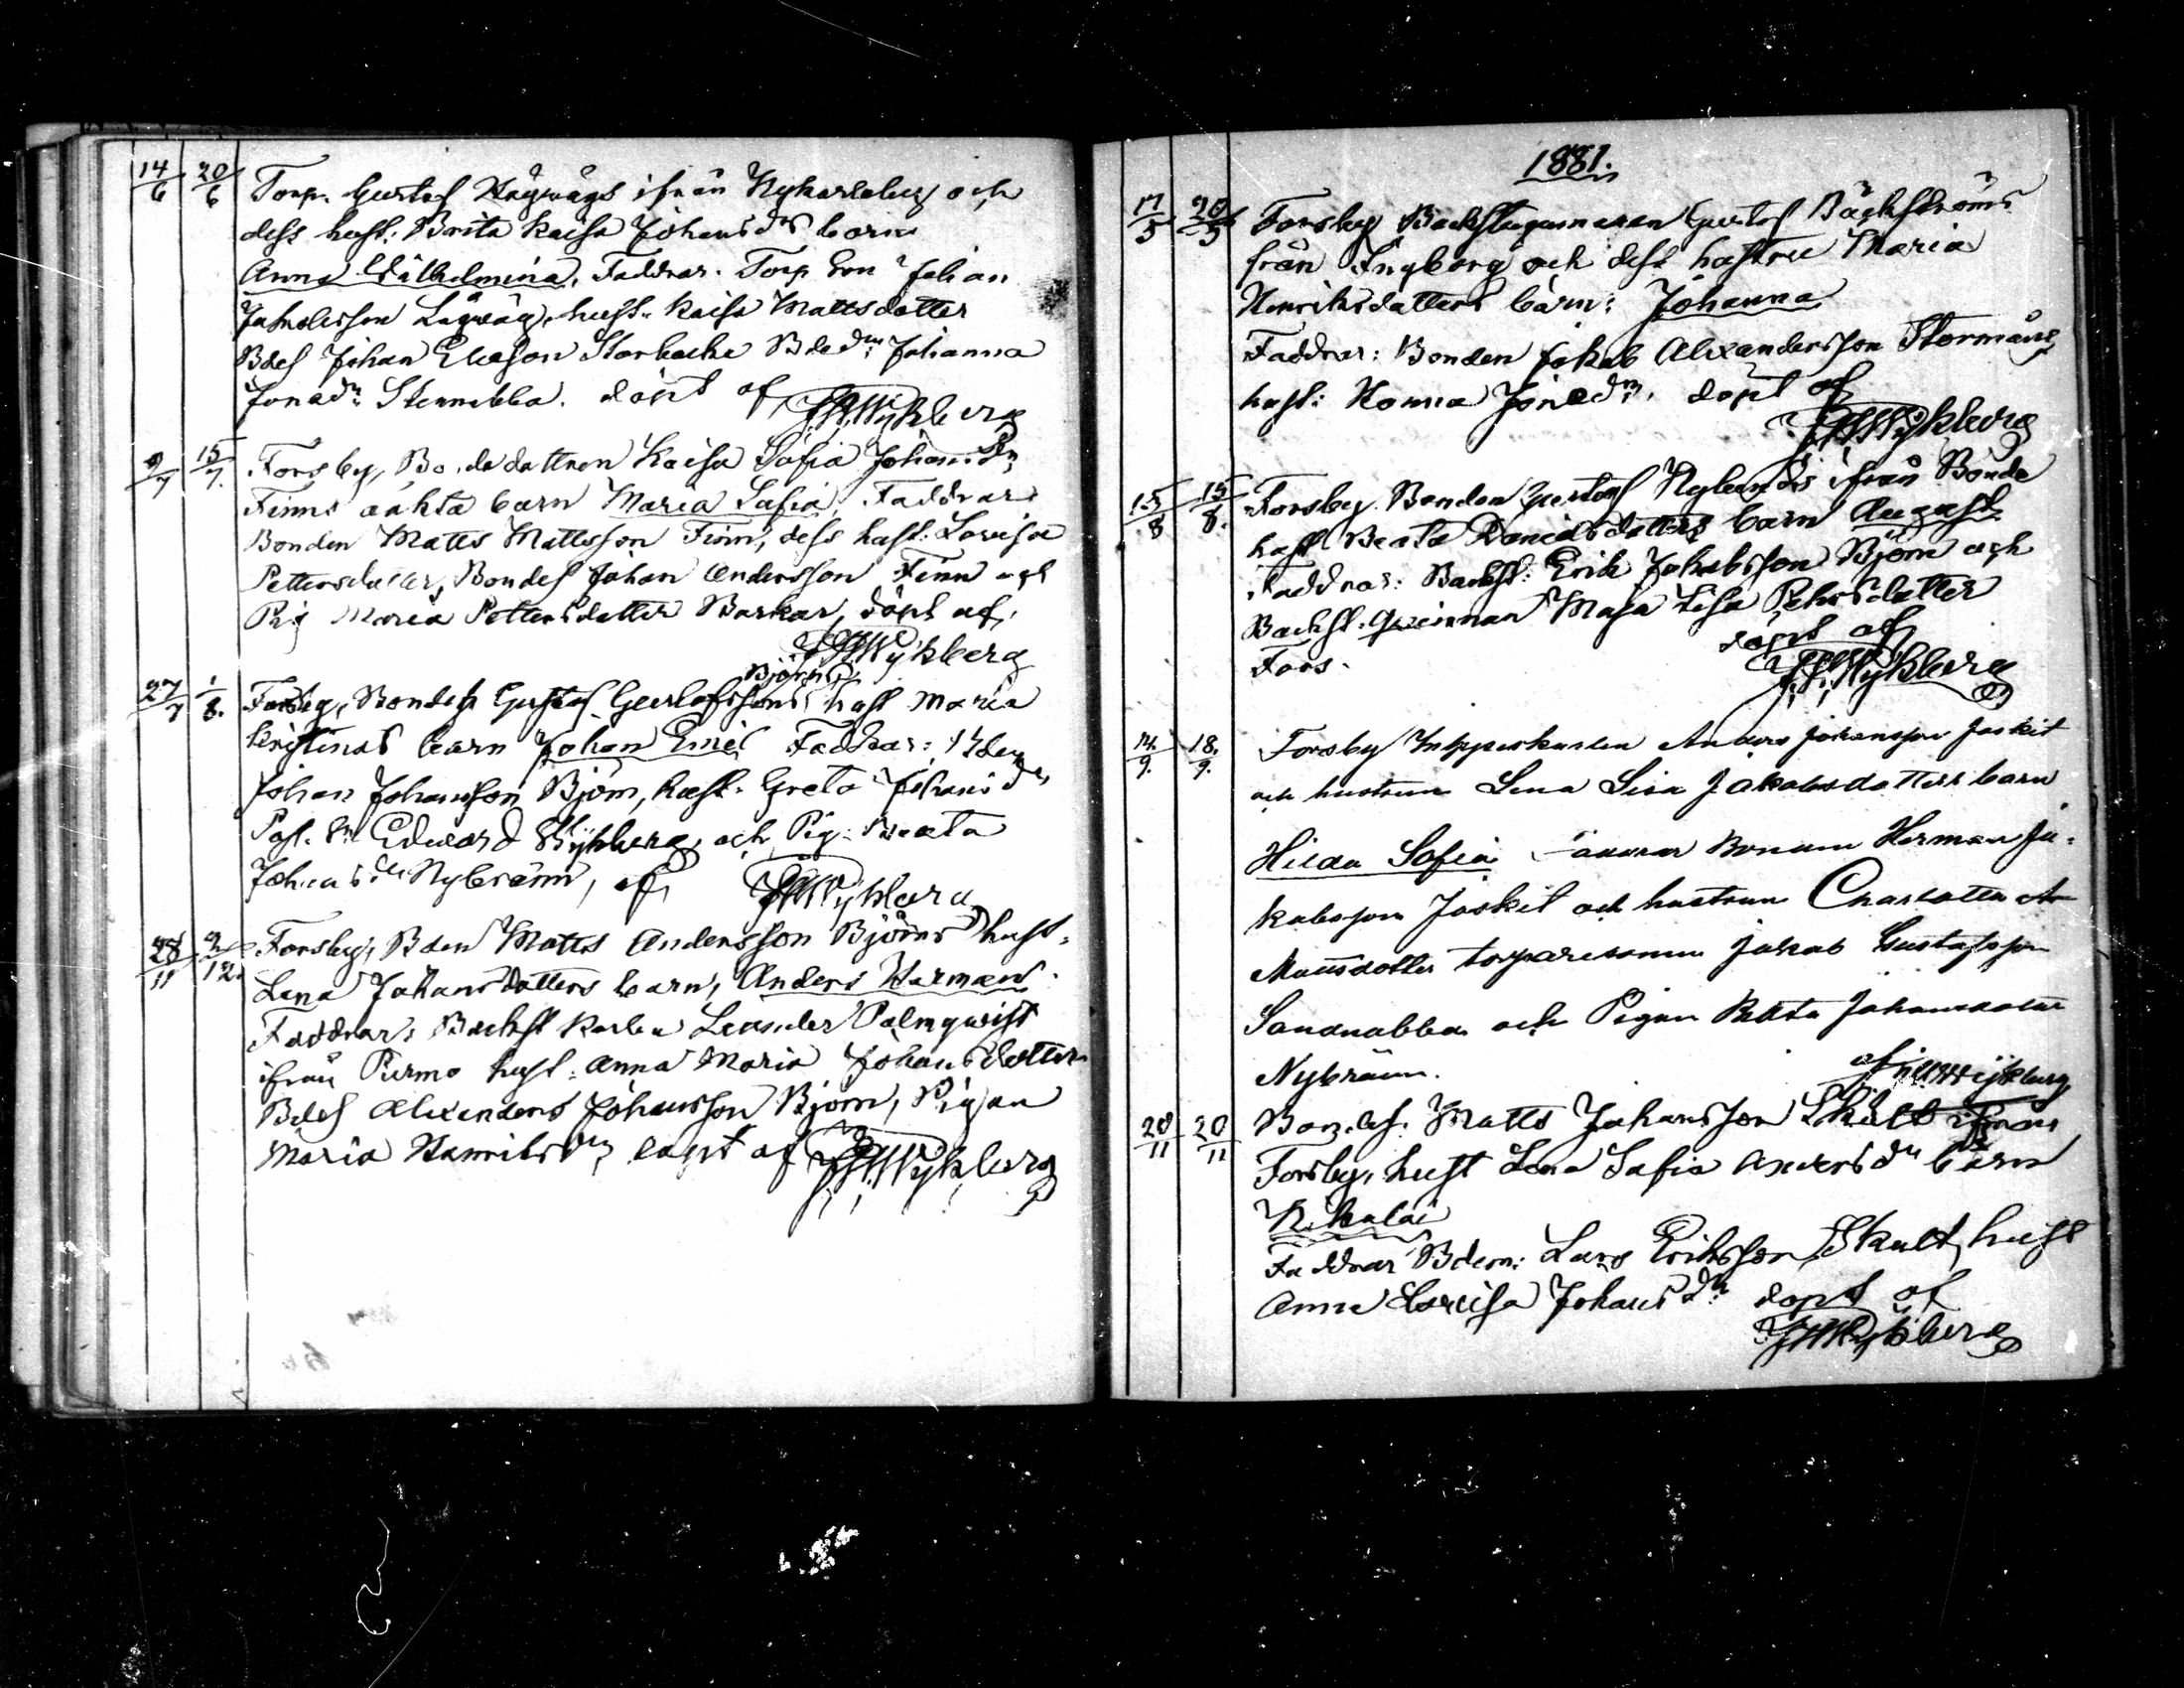 14/6 20/6 Torp. Gustaf Hägwägs ifrån Nykarleby och
dess hust: Brita Kaisa Johansdrs barn
Anna Wilhelmina, Faddrar. Torp Son Johan
Jakobsson Lågwäg, hust: Kaisa Mattsdotter
Bdes Johan Ericson Storbacka Bdedr: Johanna
Jonadr Stennabba. döpt af JHWykberg
9/7 15/7. Forsby, Bondedottren Kaisa Sofia Johansdr
Finns oäkta barn Maria Sofia, Faddrar:
Bonden Matts Mattsson Finn, dess hust: Lovisa
Pettersdotter, Bondes Johan Andersson Finn och
Pig Maria Pettersdotter Barkar, döpt af,
JHWykberg
Björns
27/7 1/8. Forsby, Bondes Gustaf Gustafssons hust Maria
Kristinas barn Johan Emil Faddrar:
Johan Johansson Björn, hust. Greta Johansdr
Edward Wykberg, och Pig. Beata
Johansdr Nybränn, af JHWykberg
28/11 2/12. Forsby, Bden Matts Andersson Björns hust.
Lena Johansdotters barn, Anders Herman
Faddrar: Backst karlen Leander Palmqwist
ifrån Purmo hust: Anna Maria Johansdotter
Bdes Alexanders Johansson Björn, Pigan
Maria Henriksdr, döpt af JHWykberg
1881.
17/5 20/5 Forsby Backstugumanen Gustaf Bäckströms
från Ingborg och dess hustru Maria
Henriksdotters barn: Johanna
Faddrar: Bonden Jakob Alexandersson Stormåns
hust: Hanna Jonsdr. döpt af
JHWykberg
15/8 15/8. Forsby. Bonden Gustaf Nylunds ifrån Bonde
hust Beata Danielsdotters barn August
Faddrar: Backst: Erik Jakobsson Björn och
Backst. Qwinnan Maja Lisa Pehrsdotter
Fors. döpt af
JHWykberg
14/9. 18/9. Forsby Inhysеskarlen Anders Johansson Joskit
och hustrun Lena Lisa Jakobsdotters barn
Hilda Sofia Faddrar Bonden Herman Ja-
kobsson Joskit och hustrun Charlotta
Mattsdotter torparesonen Jakob Gustafsson
Sandnabba och Pigan Beata Johansdotter
Nybränn. af JHWykberg
20/11 20/11 Bondes. Matts Johansson Skult ifrån
Forsby, hust Lena Sofia Andersdr barn
Nikolai
Faddrar Bden: Lars Eriksson Skult, hust
Anna Lovisa Johansdr döpt af
JHWykberg